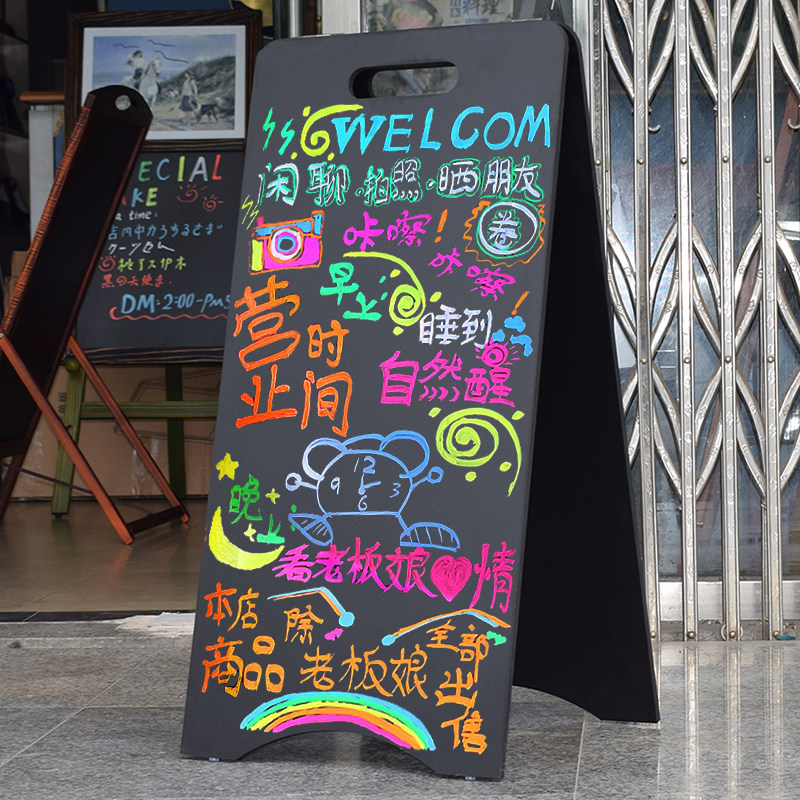 WELCOM
闲聊·拍照·晒朋友
卷
咔嚓!
咔嚓!
早上
睡到
自然醒
营业
时间
12
9 3
6
晚上
看老板娘 情
本店
商品
除
老板娘
全部
出售
SPECIAL
KE
a time:
DM:2:00-PM5
料理